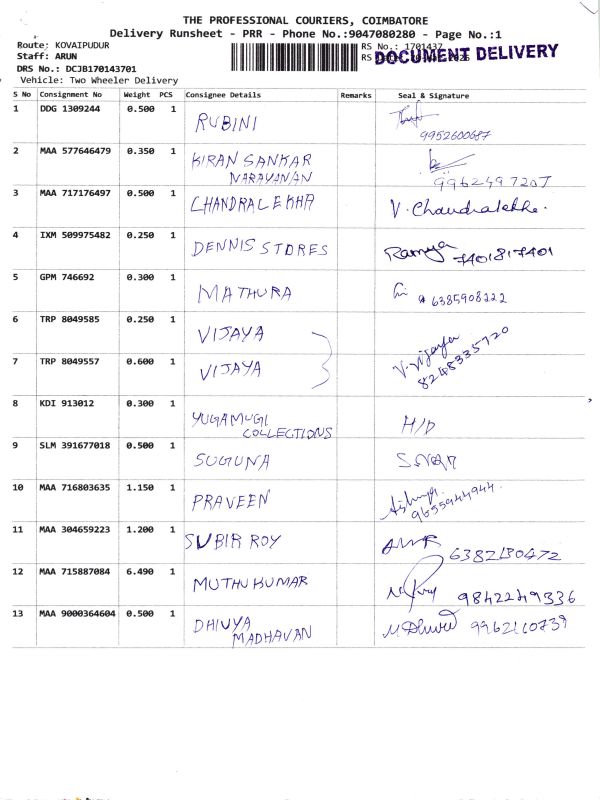 THE PROFESSIONAL COURIERS, COIMBATORE
Delivery Runsheet - PRR - Phone No.:9047080280 - Page No.:1
Route: KOVAIPUDUR
RS No.: 1701437
Staff: ARUN
RS
DOCUMENT DELIVERY
DRS No.: DCJB170143701
Vehicle: Two Wheeler Delivery
S No Consignment No Weight PCS Consignee Details Remarks Seal & Signature
1 DDG 1309244 0.500 1 RUBINI
9952600687
2 MAA 577646479 0.350 1 KIRAN SANKAR
NARAYANAN
3 MAA 717176497 0.500 1 CHANDRALEKHA V. Chandralekha.
4 IXM 509975482 0.250 1 DENNIS STORES Ramya 7401817401
5 GPM 746692 0.300 1 MATHURA 6385908222
6 TRP 8049585 0.250 1 VIJAYA V. Vijaya
7 TRP 8049557 0.600 1 VIJAYA 8248335720
8 KDI 913012 0.300 1 YUGAMUGI
COLLECTIONS H/D
9 SLM 391677018 0.500 1 SUGUNA
10 MAA 716803635 1.150 1 PRAVEEN
9655944944.
11 MAA 304659223 1.200 1 SUBIR ROY 6382130472
12 MAA 715887084 6.490 1 MUTHU KUMAR 9842249336
13 MAA 9000364604 0.500 1 DHIVYA
MADHAVAN 9962110739